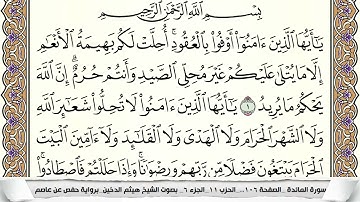 بِسْمِ اللَّهِ الرَّحْمَٰنِ الرَّحِيمِ
يَٰٓأَيُّهَا الَّذِينَ ءَامَنُوٓا۟ أَوْفُوا۟ بِالْعُقُودِ ۚ أُحِلَّتْ لَكُم بَهِيمَةُ الْأَنْعَٰمِ
إِلَّا مَا يُتْلَىٰ عَلَيْكُمْ غَيْرَ مُحِلِّى الصَّيْدِ وَأَنتُمْ حُرُمٌ ۗ إِنَّ اللَّهَ
يَحْكُمُ مَا يُرِيدُ ١ يَٰٓأَيُّهَا الَّذِينَ ءَامَنُوا۟ لَا تُحِلُّوا۟ شَعَٰٓئِرَ اللَّهِ
وَلَا الشَّهْرَ الْحَرَامَ وَلَا الْهَدْىَ وَلَا الْقَلَٰٓئِدَ وَلَآ ءَآمِّينَ الْبَيْتَ
الْحَرَامَ يَبْتَغُونَ فَضْلًا مِّن رَّبِّهِمْ وَرِضْوَٰنًا ۚ وَإِذَا حَلَلْتُمْ فَاصْطَادُوا۟ ۚ
سورة المائدة .. الصفحة ١٠٦ ... الحزب ١١ .. الجزء ٦ .. بصوت الشيخ هيثم الدخين .. برواية حفص عن عاصم